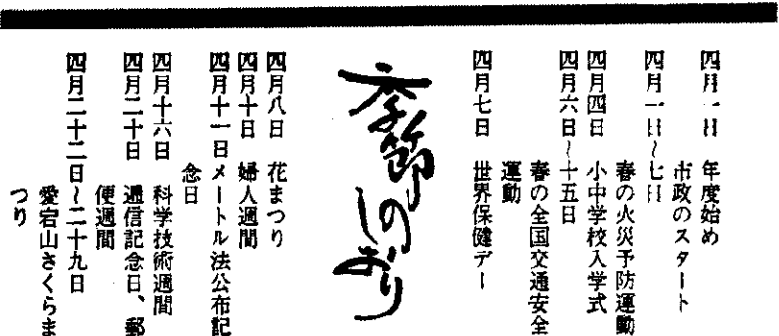 四月一日　年度始め
市政のスタート
四月一日～七日
春の火災予防運動
四月四日　小中学校入学式
四月六日～十五日
春の全国交通安全
運動
四月七日　世界保健デー
季節のしおり
四月八日　花まつり
四月十日　婦人週間
四月十一日メートル法公布記
念日
四月十六日　科学技術週間
四月二十日　逓信記念日、郵
便週間
四月二十二日～二十九日
愛宕山さくらま
つり